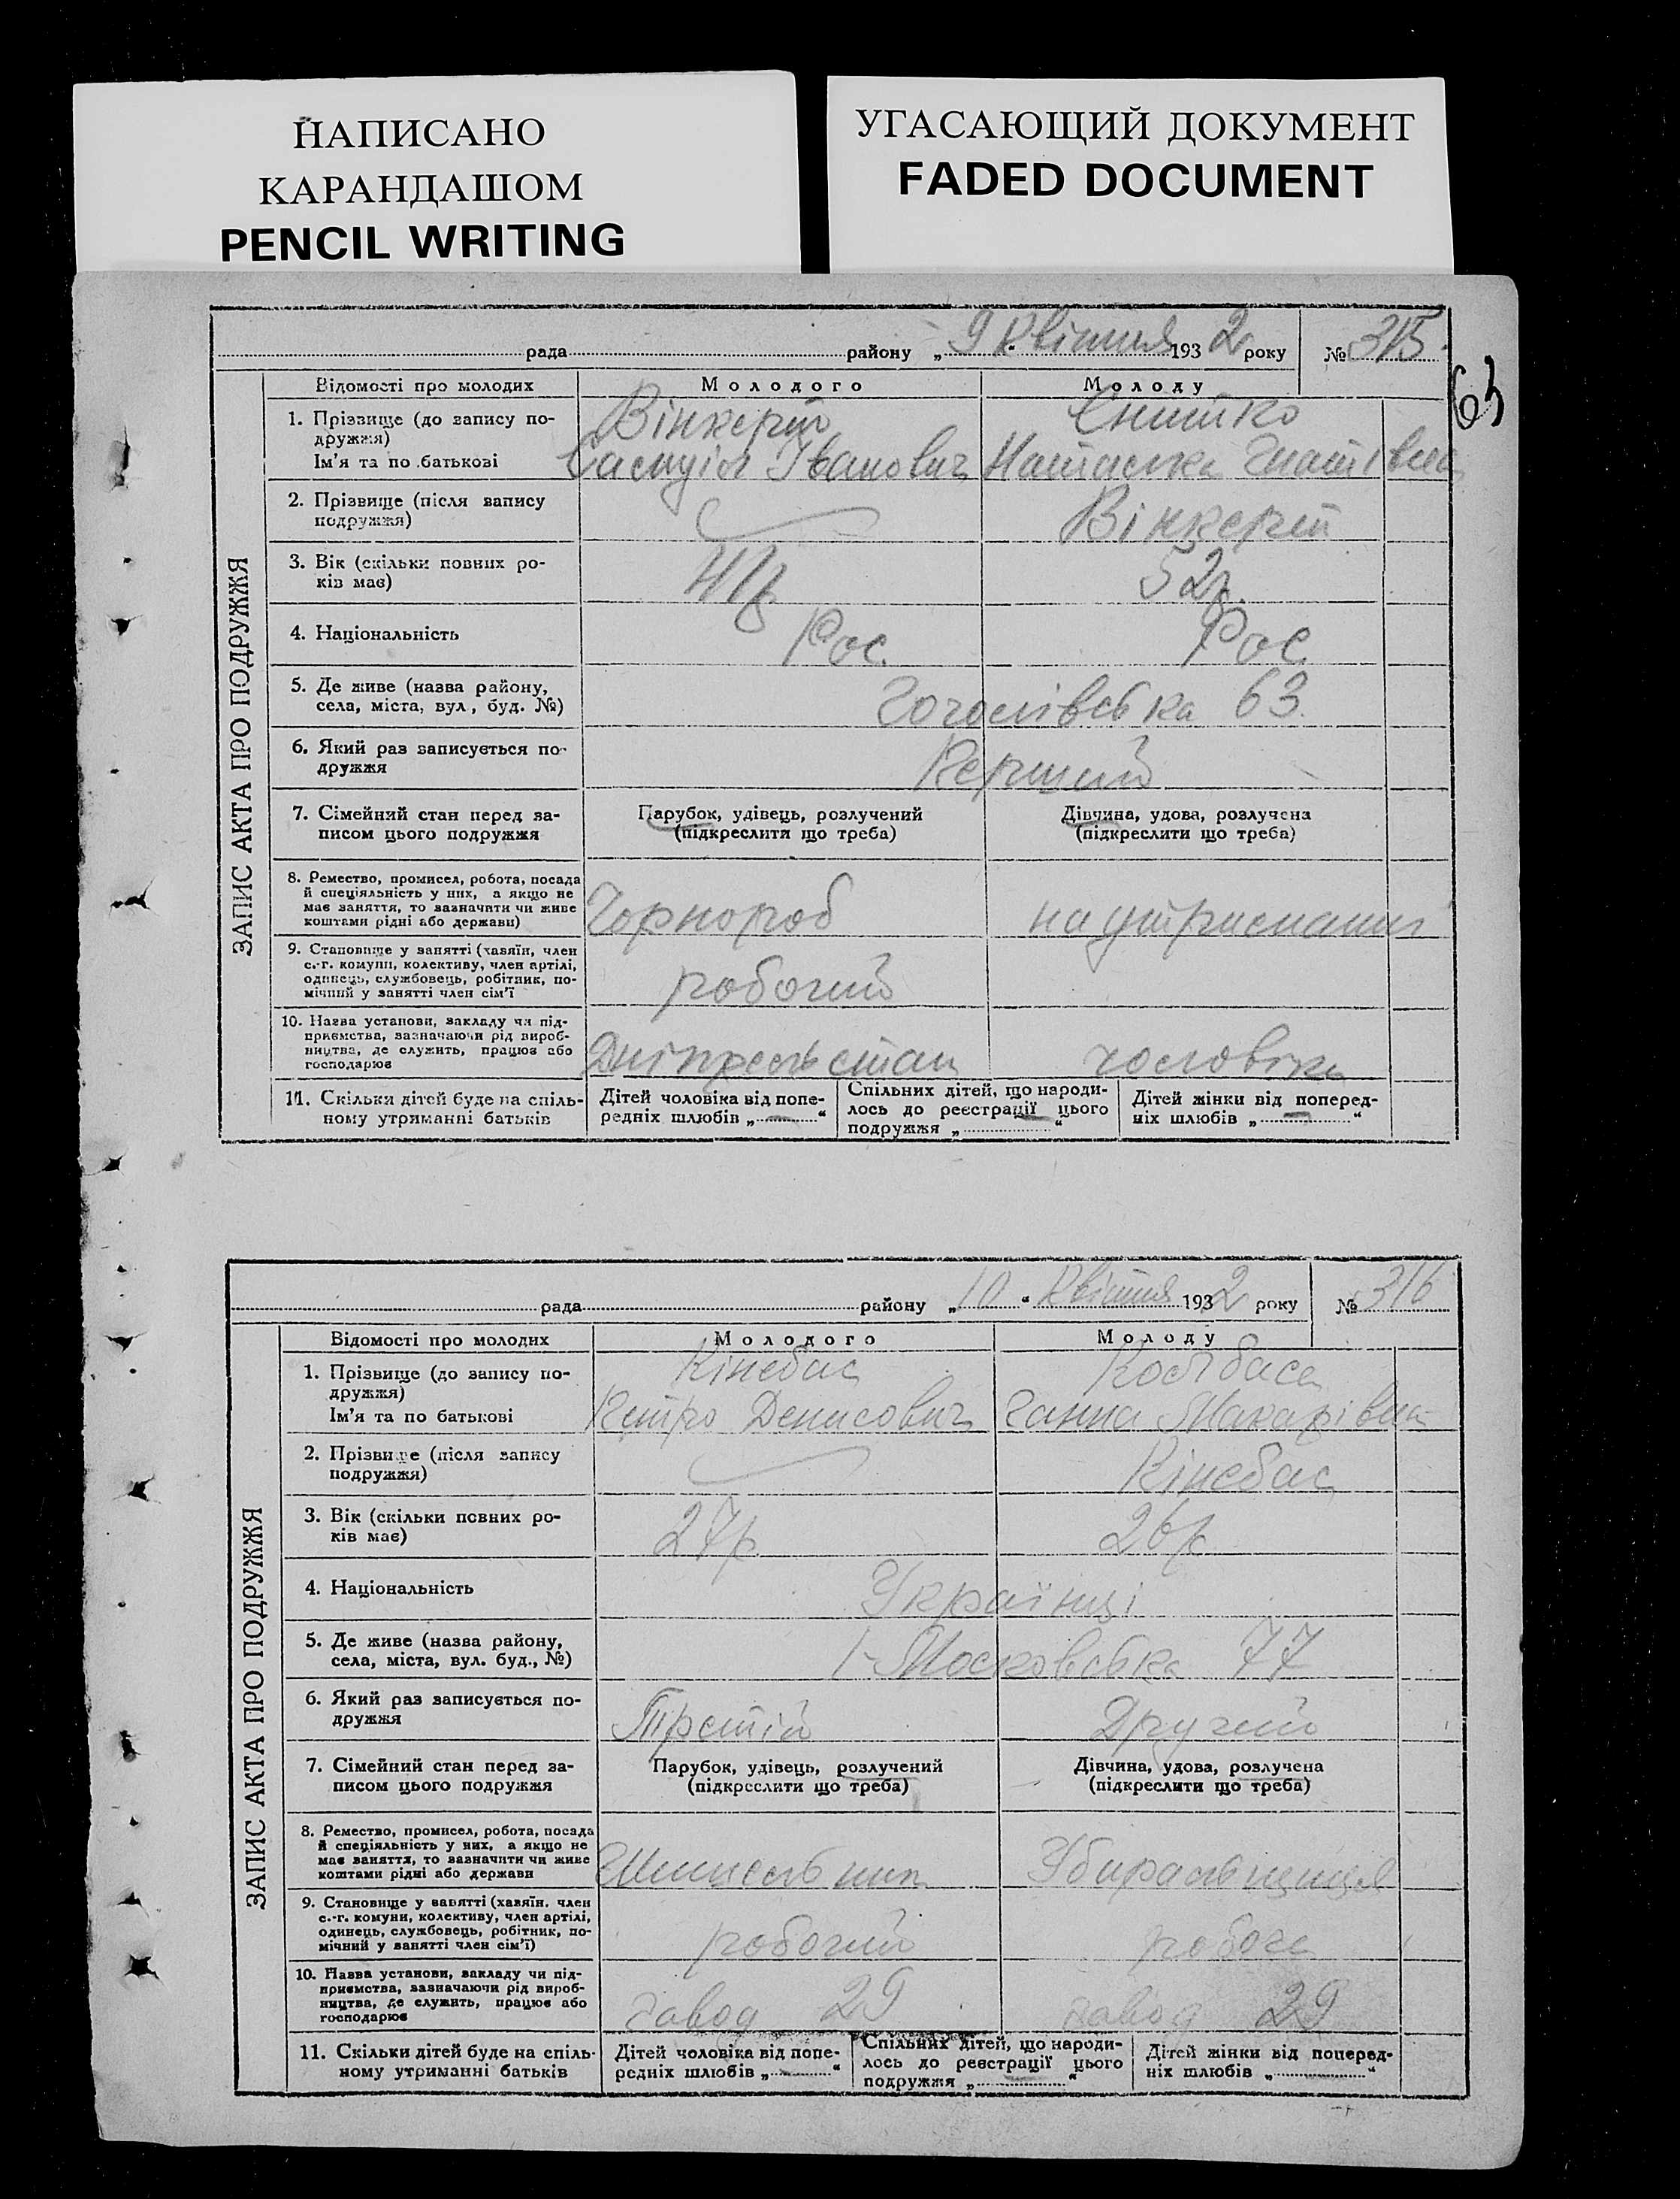 НАПИСАНО
КАРАНДАШОМ
PENCIL WRITING
УГАСАЮЩИЙ ДОКУМЕНТ
FADED DOCUMENT
рада району „9“ Квітня 1932 року № 315
63
ЗАПИС АКТА ПРО ПОДРУЖЖЯ
Відомості про молодих Молодого Молоду
1. Прізвище (до запису по-
дружжя)
Вінкерт Снитко
Ім'я та по батькові Самуіл Іванович Наталка Гнатівна
2. Прізвище (після запису
подружжя)
Вінкерт
3. Вік (скільки повних ро-
ків має)
41р 52р.
4. Національність Рос. Рос.
5. Де живе (назва району,
села, міста, вул., буд. №)
Гоголівська 63.
6. Який раз записується по-
дружжя
Перший
7. Сімейний стан перед за-
писом цього подружжя
Парубок, удівець, розлучений
(підкреслити що треба)
Дівчина, удова, розлучена
(підкреслити що треба)
8. Ремество, промисел, робота, посада
й спеціяльність у них, а якщо не
має заняття, то зазначити чи живе
коштами рідні або держави)
Чорнороб на утриманні
9. Становище у занятті (хазяїн, член
с.-г. комуни, колективу, член артілі,
одинець, службовець, робітник, по-
мічний у занятті член сім'ї
робочий
10. Назва установи, закладу чи під-
приємства, зазначаючи рід вироб-
ництва, де служить, працює або
господарює
чоловіка
11. Скільки дітей буде на спіль-
ному утриманні батьків
Дітей чоловіка від попе-
редніх шлюбів „—“
Спільних дітей, що народи-
лось до реєстрації цього
подружжя „—“
Дітей жінки від поперед-
ніх шлюбів „—“
рада району „10“ Квітня 1932 року № 316
ЗАПИС АКТА ПРО ПОДРУЖЖЯ
Відомості про молодих Молодого Молоду
1. Прізвище (до запису по-
дружжя)
Кінебас Ковбаса
Ім'я та по батькові Петро Денисович Ганна Макарівна
2. Прізвище (після запису
подружжя)
Кінебас
3. Вік (скільки повних ро-
ків має)
27р 26р
4. Національність Українці
5. Де живе (назва району,
села, міста, вул. буд., №)
1-Московська 77
6. Який раз записується по-
дружжя
Третій Другий
7. Сімейний стан перед за-
писом цього подружжя
Парубок, удівець, розлучений
(підкреслити що треба)
Дівчина, удова, розлучена
(підкреслити що треба)
8. Ремество, промисел, робота, посада
й спеціяльність у них, а якщо не
має заняття, то зазначити чи живе
коштами рідні або держави
Убиральщиця
9. Становище у занятті (хазяїн, член
с.-г. комуни, колективу, член артілі,
одинець, службовець, робітник, по-
мічний у занятті член сім'ї)
робочий робоча
10. Назва установи, закладу чи під-
приємства, зазначаючи рід вироб-
ництва, де служить, працює або
господарює
завод 29 завод 29
11. Скільки дітей буде на спіль-
ному утриманні батьків
Дітей чоловіка від попе-
редніх шлюбів „—“
Спільних дітей, що народи-
лось до реєстрації цього
подружжя „—“
Дітей жінки від поперед-
ніх шлюбів „“